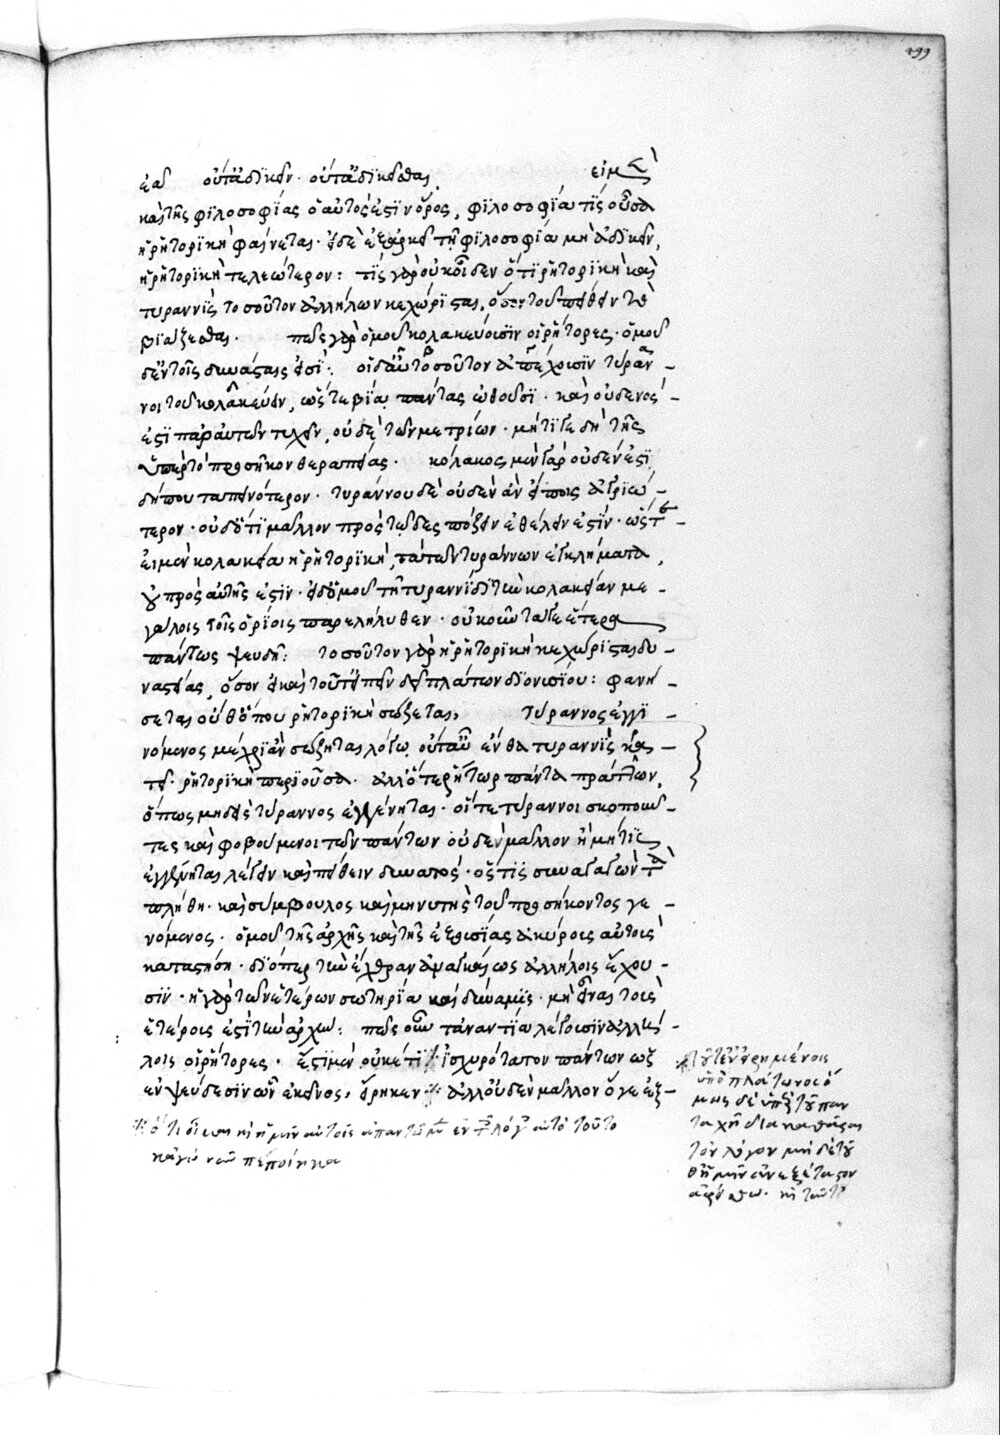 299
ἐᾶ οὔτ' ἀδικεῖν. οὔτ' ἀδικεῖσθαι. εἰ μὲν
καὶ τῆς φιλοσοφίας ὁ αὐτός ἐστιν ὅρος, φιλοσοφία τὶς οὖσα
ἡ ῥητορικὴ φαίνεται. εἰ δὲ ἐξαρκεῖ τῇ φιλοσοφία μὴ ἀδικεῖν,
ἡ ῥητορικὴ τελεώτερον: τίς γὰρ οὐκ οἶδεν ὅτι ῥητορικὴ καὶ
τυραννὶς τοσοῦτον ἀλλήλων κεχώρισται, ὅσον τοῦ πείθειν τὸ
βιάζεσθαι. πῶς γὰρ ὁμοῦ κολακεύουσιν οἱ ῥήτορες. ὁμοῦ
δ' ἐν τοῖς δυνάσταις εἰσὶ: οἱ δ' αὖ τοσοῦτον ἀπέχουσιν τύραν-
νοι τοῦ κολακεύειν, ὥστε βία πάντας ὠθοῦσι. καὶ οὐδενός
ἐστι παρ' αὐτῶν τυχεῖν, οὐδὲ τῶν μετρίων. μήτί γε δὴ τῆς
ὑπὲρ τὸ προσῆκον θεραπείας. κόλακος μὲν γὰρ οὐδέν ἐστι
δήπου ταπεινότερον. τυράννου δὲ οὐδὲν ἂν εἴποις ἀγριώ-
τερον. οὐδ' ὅτι μᾶλλον πρὸς τῷ δεσπόζειν ἐθέλειν ἐστίν. ὥστ'
εἰ μὲν κολακεία ἡ ῥητορικὴ, τὰ τῶν τυράννων ἐγκλήματα,
οὐ πρὸς αὐτῆς ἐστιν. εἰ δ' ὁμοῦ τῇ τυραννίδι τὴν κολακείαν με-
γάλοις τοῖς ὁρίοις παρελήλυθεν. οὐκοῦν τά γε ἕτερα
πάντως ψευδῆ: τοσοῦτον γὰρ ἡ ῥητορικὴ κεχώρισται δυ-
ναστείας, ὅσον εἰ καὶ τοῦτ' εἰπεῖν δεῖ πλάτων διονυσίου: φανή-
σεται οὐδ' ὅπου ῥητορικὴ σώζεται, τύραννος ἐγγι-
νόμενος μέχρι ἂν σώζηται λόγω. οὔτ' αὖ ἔνθα τυραννὶς κρα-
τεῖ. ῥητορικὴ περιοῦσα. ἀλλ' ὅ τε ῥήτωρ πάντα πράττων,
ὅπως μηδεὶς τύραννος ἐγγένηται. οἵ τε τύραννοι σκοποῦν-
τες καὶ φοβούμενοι τῶν πάντων οὐδὲν μᾶλλον ἢ μή τις
ἐγγένηται λέγειν καὶ πείθειν δυνατός. ὅς τις συναγαγὼν τὰ
πλήθη. καὶ σύμβουλος καὶ μηνυτὴς τοῦ προσήκοντος γε-
νόμενος. ὁμοῦ τῆς ἀρχῆς καὶ τῆς ἐξουσίας ἀκύρους αὐτοὺς
καταστήση. διόπερ τὴν ἔχθραν ἀναγκαίως ἀλλήλοις ἔχου-
σιν. ἡ γὰρ τῶν ἑτέρων σωτηρία καὶ δύναμις. μὴ εἶναι τοῖς
ἑτέροις ἐστὶ τὴν ἀρχὴν: πῶς οὖν τἀναντία λέγουσιν ἀλλή-
λοις οἱ ῥήτορες. ἔστι μὲν οὐκέτι ἰσχυρότατον πάντων ὡς
ἐν ψεύδεσιν ὧν ἐκεῖνος εἴρηκεν ἀλλ' οὐδὲν μᾶλλον ὅ γε ἐξ-
ὅτι οἴεται ἡμῖν αὐτοῖς ἁπαντᾶν ἐν τῷ λόγῳ αὐτὸ τοῦτο
κἀγὼ νῦν πεποίηκα
τῶν εἰρημένοις
ὑπὸ πλάτωνος ὅ
μως δὲ ὑπὲρ τοῦ παν
ταχῆ διακαθᾶραι
τὸν λόγον
ἡμῖν ἀνεξέταστον